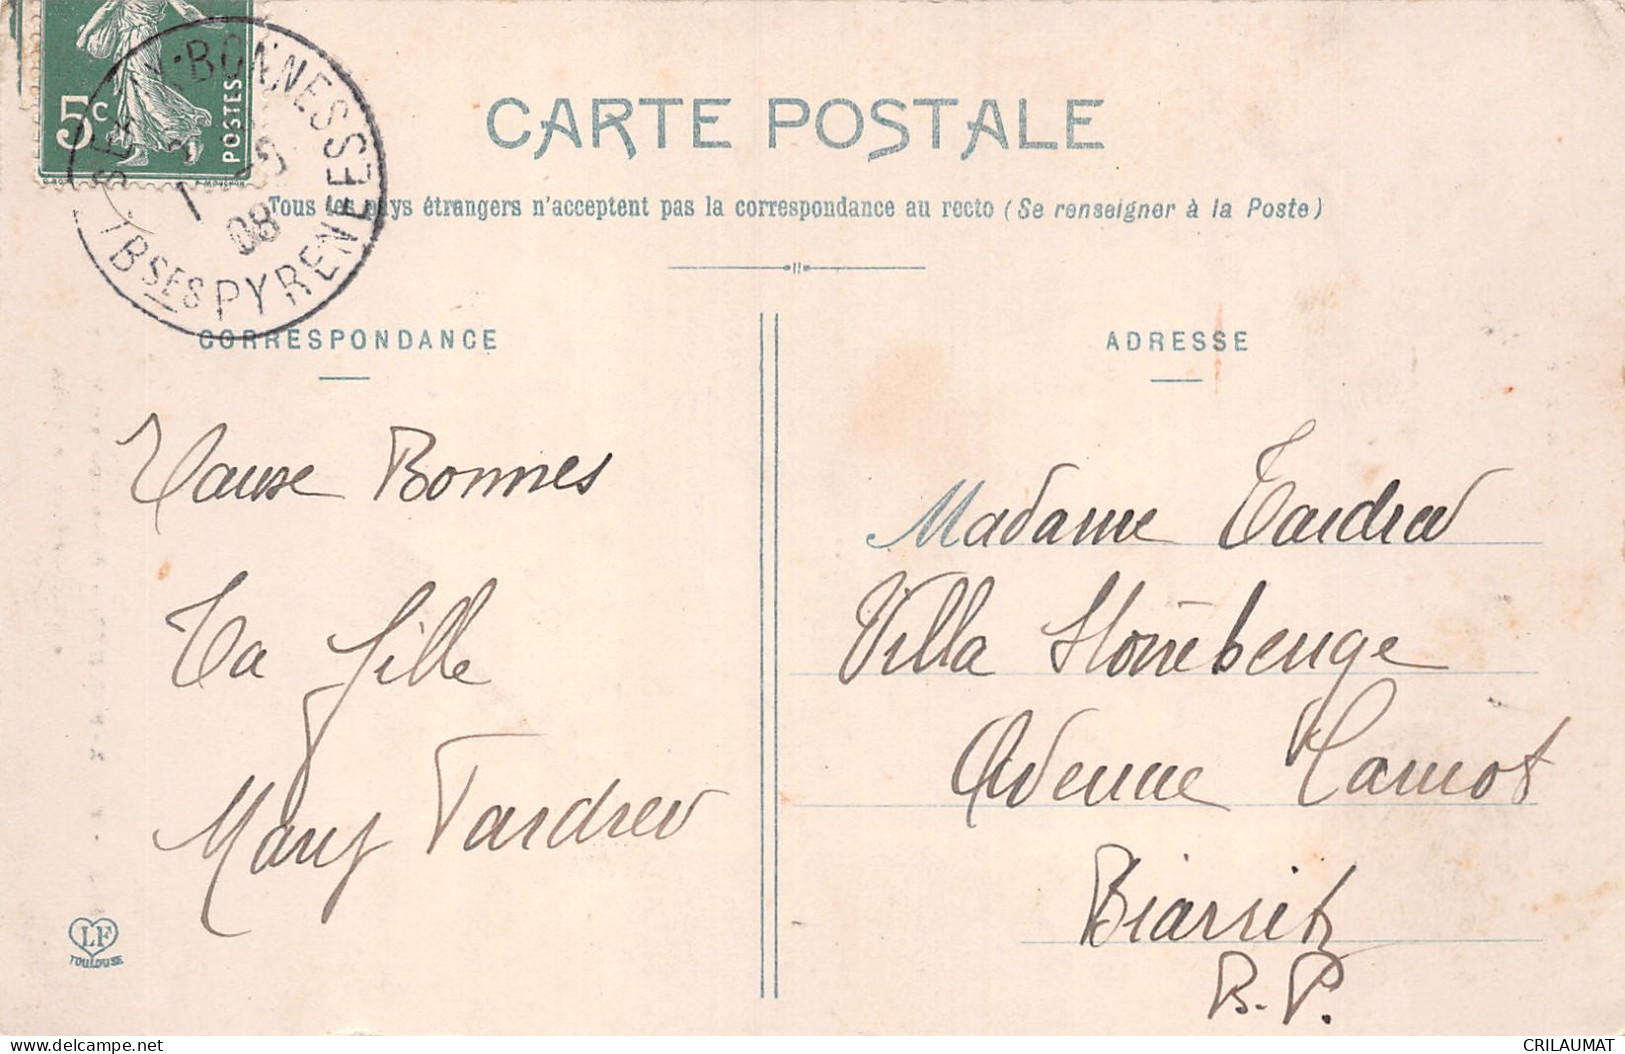 5c
POSTES
BONNES
Bses PYRENEES
08
CARTE POSTALE
Tous les pays étrangers n'acceptent pas la correspondance au recto (Se renseigner à la Poste)
CORRESPONDANCE
Bonnes
Ta fille
Mary Tardrew
LF
TOULOUSE
ADRESSE
Madame Tardrew
Villa
Avenue Carnot
Biarritz
B. P.
Visit Delcampe.net
CRILAUMAT